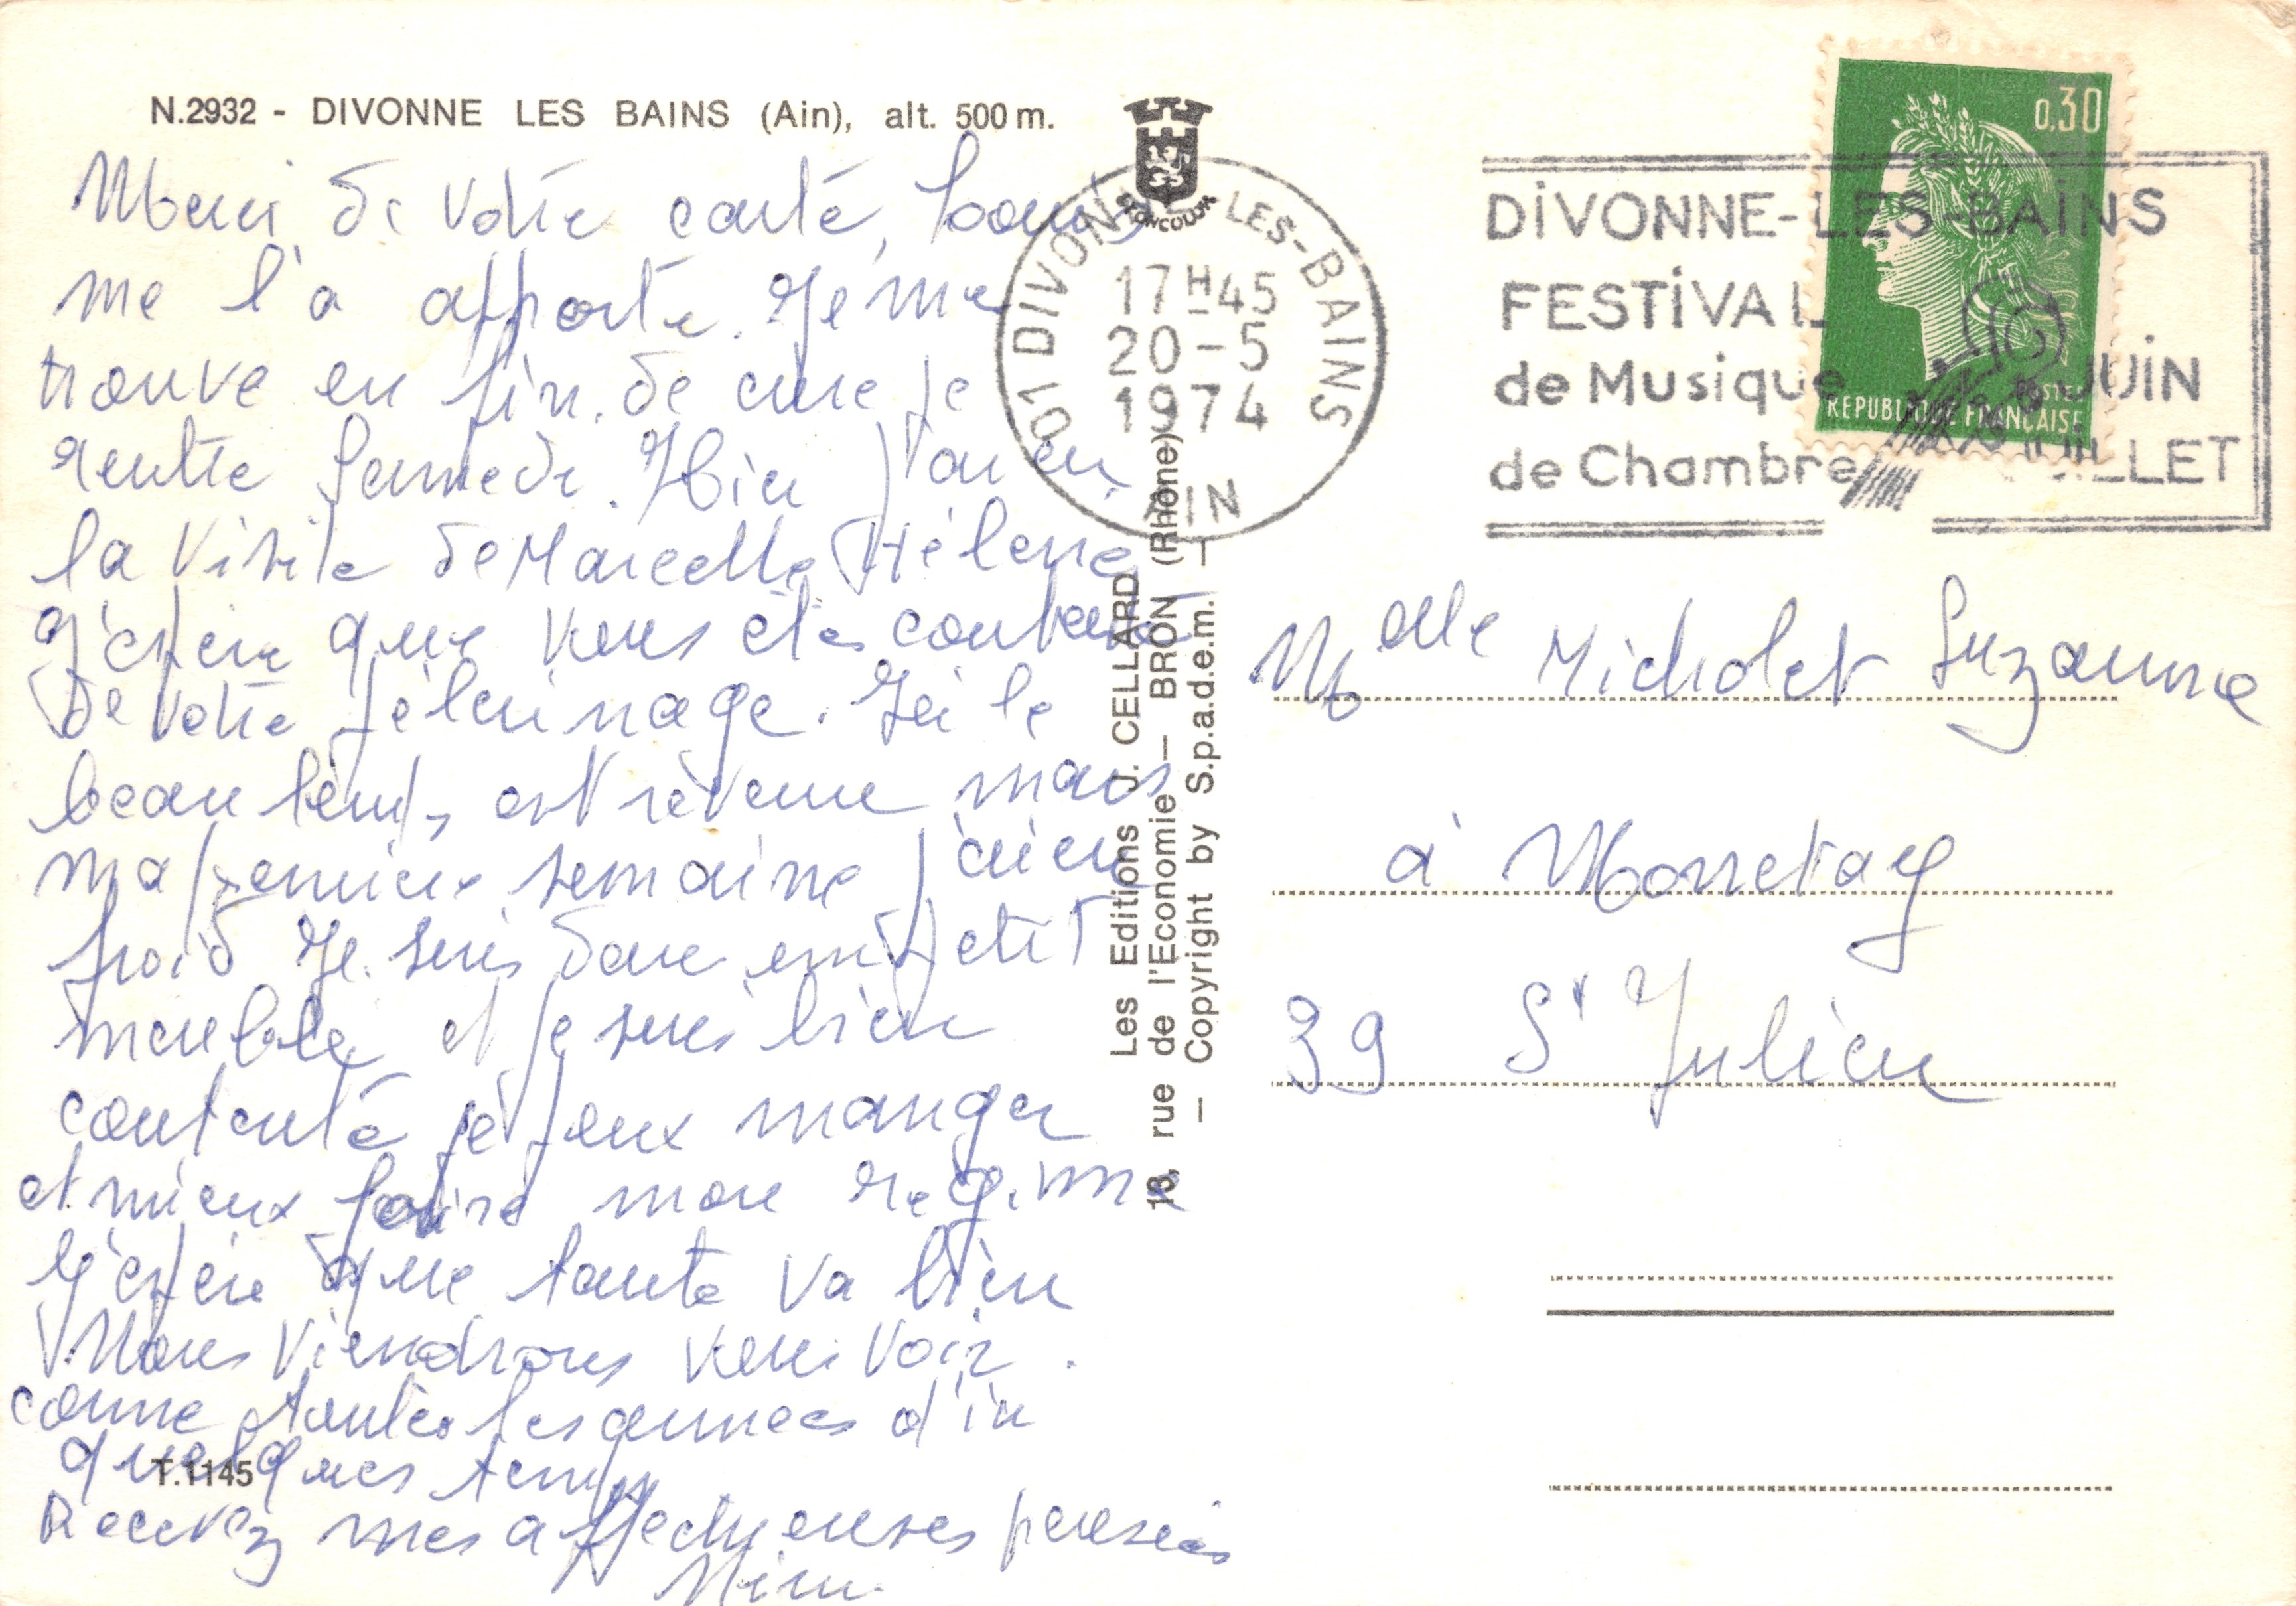 N.2932 - DIVONNE LES BAINS (Ain), alt. 500 m.
Merci de votre carte, Louis
me l'a apporté. Je me
trouve en fin de cure je
rentre Samedi. Hier j'ai eu
la visite de Marcelle Hélène
J'espère que vous êtes contente
de votre pélerinage. Ici le
beau temps est revenu mais
ma première semaine j'ai eu
froid Je suis dans un petit
meublé et je suis bien
contente je peux manger
et mieux faire mon régime
J'espère que tante va bien
Nous viendrons vous voir.
comme toutes les années d'in
quelques temps
Recevez mes affectueuses pensées
Mimi
T.1145
Les Editions J. CELLARD
18, rue de l'Economie — BRON (Rhône)
— Copyright by S.p.a.d.e.m. —
01 DIVONNE-LES-BAINS
17H45
20-5
1974
AIN
DIVONNE-LES-BAINS
FESTIVAL
de Musique JUIN
de Chambre JUILLET
0,30
POSTES
REPUBLIQUE FRANÇAISE
Melle Micholet Suzanne
à Monnetay
39 St Julien